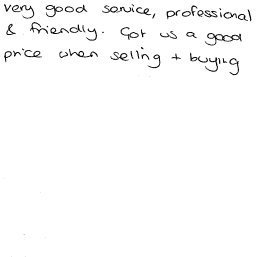 very good service, professional
& friendly. Got us a good
price when selling + buying